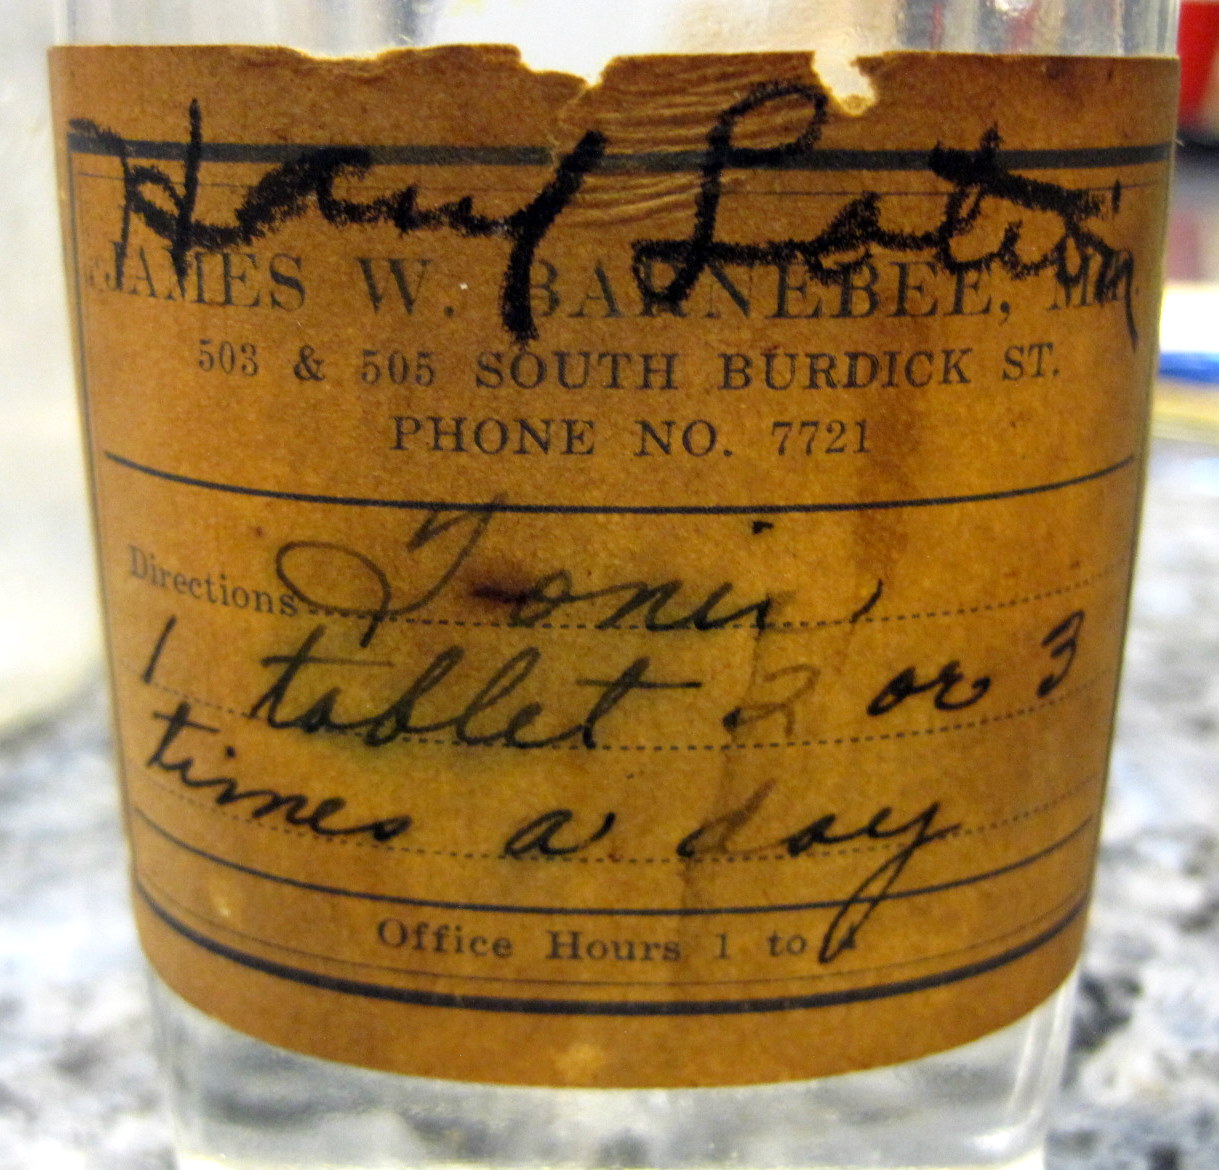 Hand Lotion
JAMES W. BARNEBEE, M.D.
503 & 505 SOUTH BURDICK ST.
PHONE NO. 7721
Directions Tonic
1 tablet 2 or 3
times a day
Office Hours 1 to